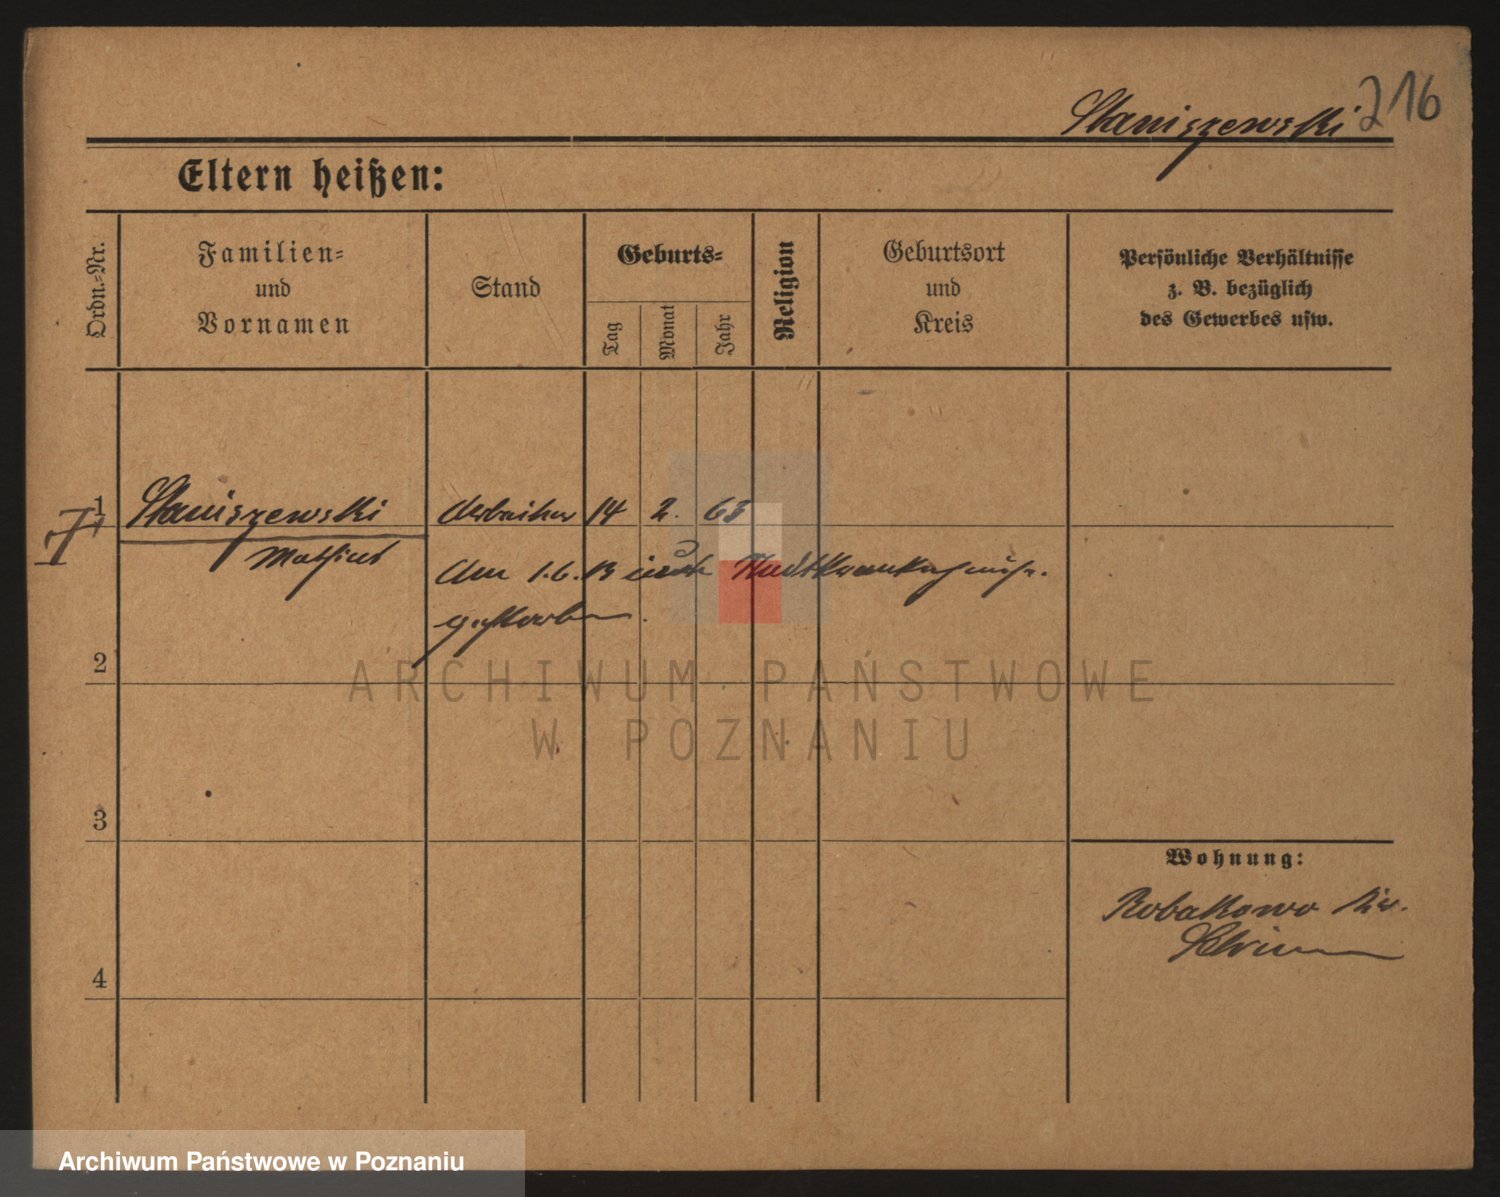 Staniszewski 216
Eltern heißen:
Ordn.-Nr.
Familien-
und
Vornamen
Stand
Geburts-
Tag
Monat
Jahr
Religion
Geburtsort
und
Kreis
Persönliche Verhältnisse
z. B. bezüglich
des Gewerbes usw.
1 Staniszewski Arbeiter 14 2. 63
Mathias
Am 1.6.13 im Stadtkrankenhause
gestorben.
2
3
4
Wohnung:
Robakowo Kr.
Schrimm
ARCHIWUM PAŃSTWOWE
W POZNANIU
Archiwum Państwowe w Poznaniu